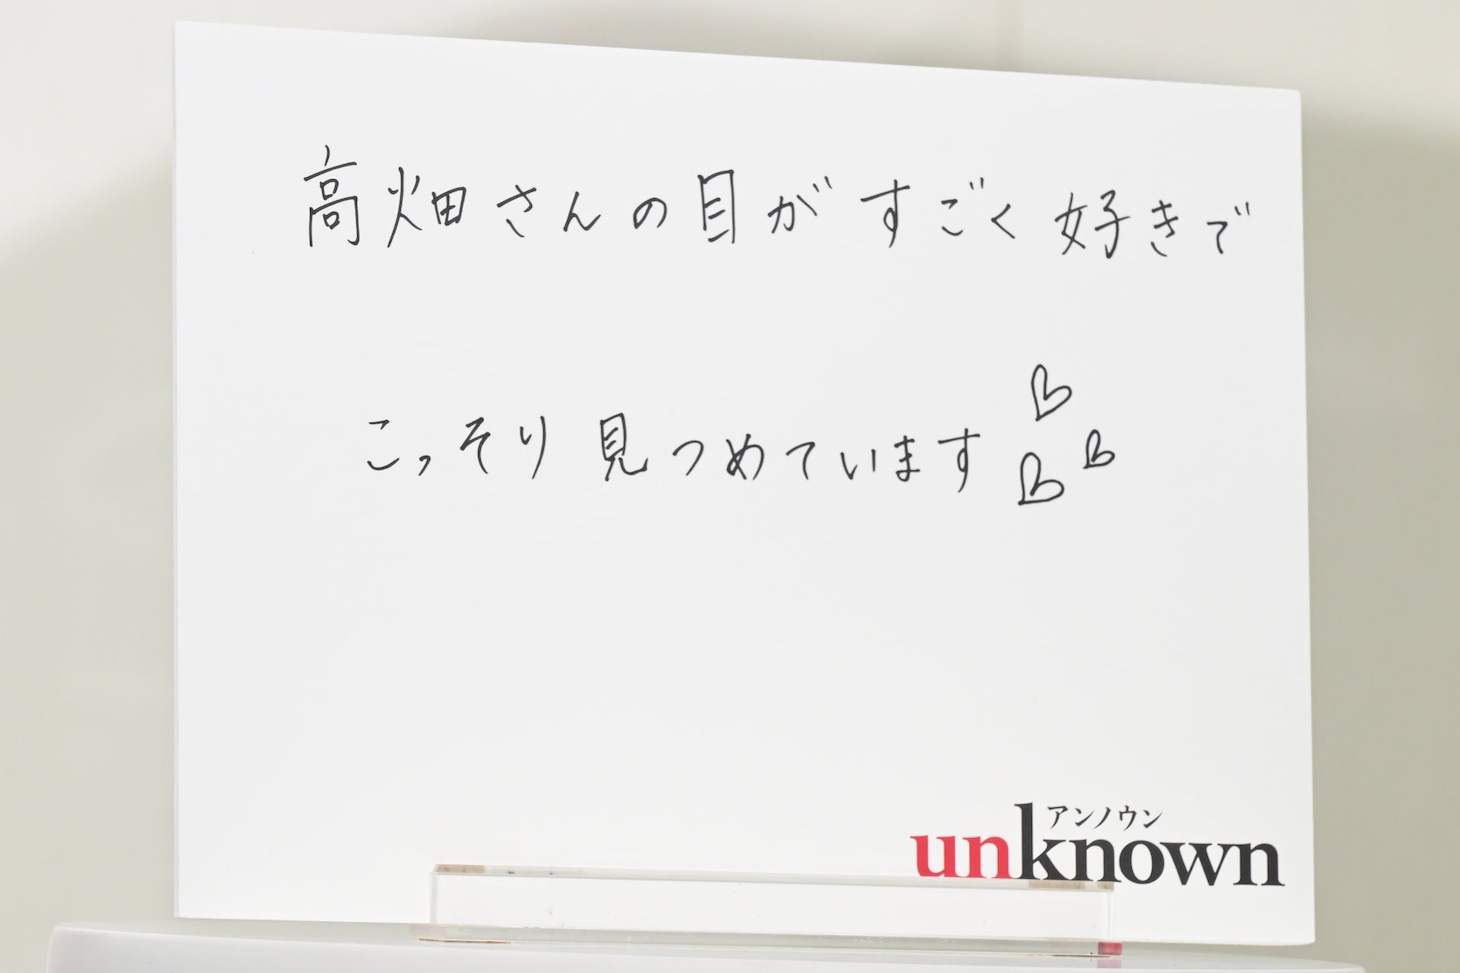 高畑さんの目がすごく好きで
こっそり見つめています♡♡♡
アンノウン
unknown